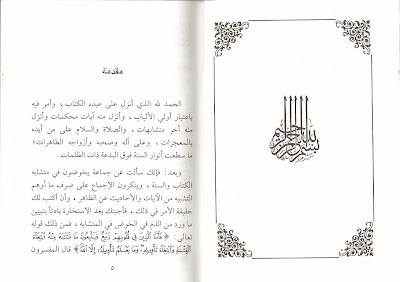 بسم الله الرحمن الرحيم
مقدمة
الحمد لله الذي أنزل على عبده الكتاب ، وأمر فيه
باعتبار أولي الألباب ، وأنزل منه آيات محكمات وأنزل
منه أخر متشابهات ، والصلاة والسلام على من أيده
بالمعجزات ، وعلى آله وصحبه وأزواجه الطاهرات ؛
ما سطعت أنوار السنة فوق البدعة ذات الظلمات .
وبعد : فإنك سألت عن جماعة يخوضون في متشابه
الكتاب والسنة ، وينكرون الإجماع على صرف ما أوهم
التشبيه من الآيات والأحاديث عن الظاهر ، وأن أكتب لك
حقيقة الأمر في ذلك ، فأجبتك بعد الاستخارة بادئاً بتبيين
ما ورد من الذم في الخوض في المتشابه ، فمن ذلك قوله
تعالى : ﴿ فَأَمَّا الَّذِينَ فِي قُلُوبِهِمْ زَيْغٌ فَيَتَّبِعُونَ مَا تَشَابَهَ مِنْهُ ابْتِغَاءَ
الْفِتْنَةِ وَابْتِغَاءَ تَأْوِيلِهِ وَمَا يَعْلَمُ تَأْوِيلَهُ إِلَّا اللَّهُ ﴾ قال المفسرون
٥